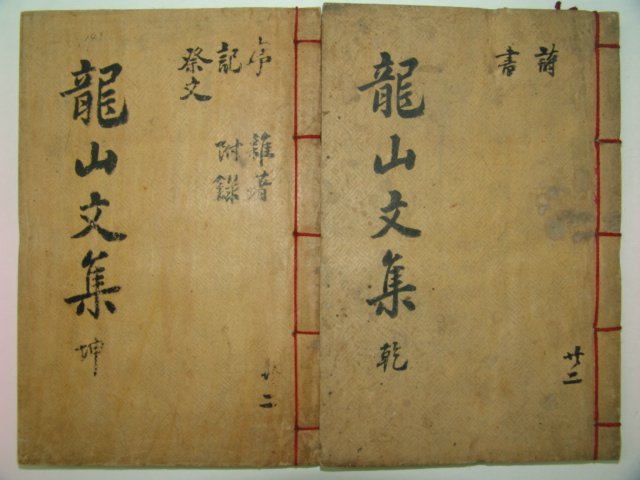 詩
書
龍山文集 乾
共二
序 雜著
記 附錄
祭文
龍山文集 坤